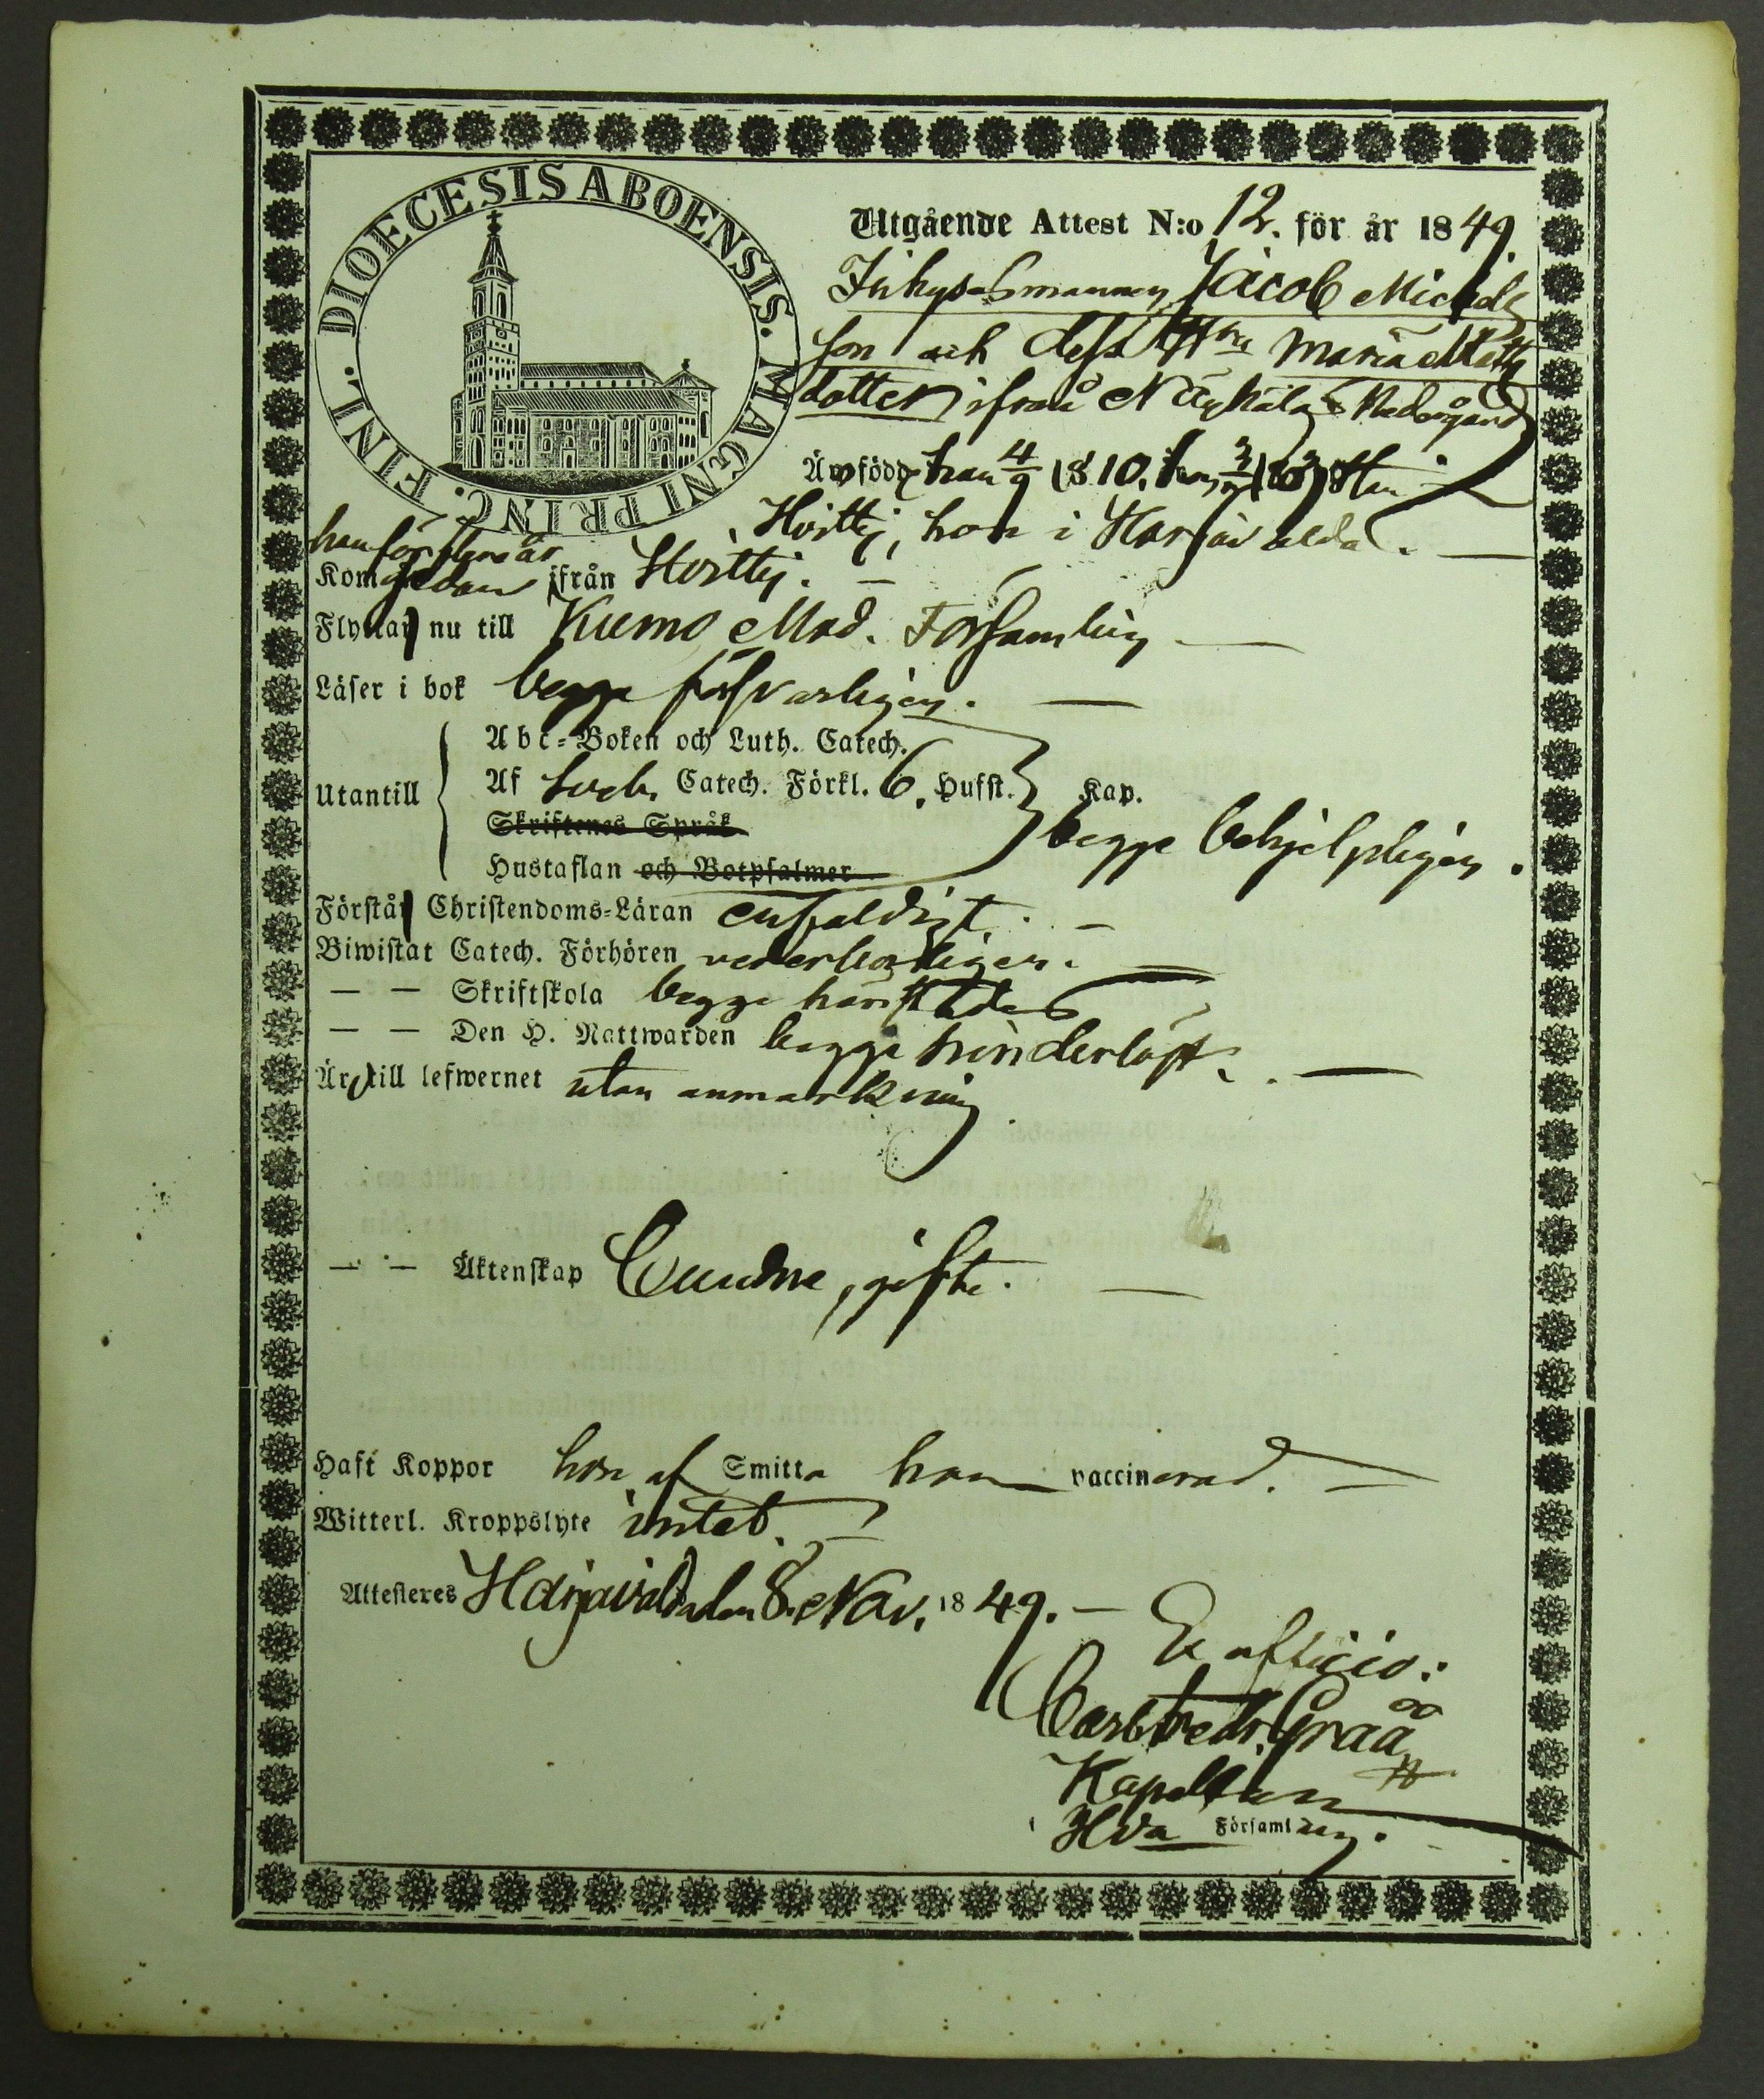 DIOECESIS ABOENSIS. MAGNI PRINC. FINL.
Utgående Attest N:o 12. för år 1849.
Inhysesmannen Jacob Michels
son och dess Hru Maria Matts
dotter ifrån Näyhälä Nedergård
Äro född han 4/9 1810, hon 3/7 Han i
Hvittis, hon i Harjavalda.
han för flere år
Kom sedan ifrån Hvittis.
Flyttar nu till Kumo Mod. Församling
Läser i bok begge försvarligen.
Abc-Boken och Luth. Catech.
Utantill Af Sveb. Catech. Förkl. 6. Hufst. Kap.
Skriftenes Språk
begge behjelpligen.
Hustaflan och Botpsalmer
Förstår Christendoms-Läran enfaldigt.
Biwistat Catech. Förhören vederbörligen.
— — Skriftskola begge härstädes
— — Den H. Nattwarden begge hinderlöst.
Äro till lefwernet utan anmärkning
— — Äktenskap bundne, gifte.
Haft Koppor hon af Smitta han vaccinerad.
Witterl. Kroppslyte intet.
Attesteres Harjavalda den 8. Nov. 1849.
Ex officio:
Carl Fredr. Graa
Kapellan
i Hva Församling.